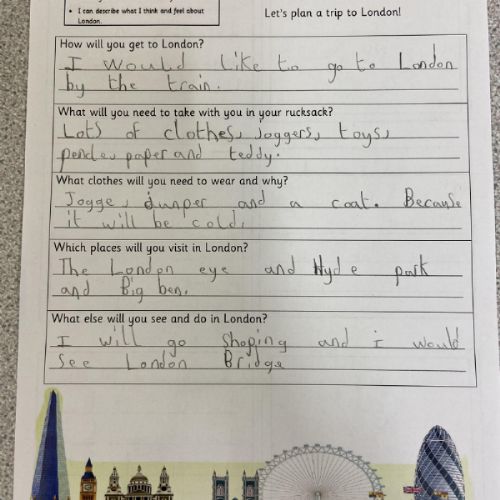 • I can describe what I think and feel about
London.
Let's plan a trip to London!
How will you get to London?
I would like to go to London
by the train.
What will you need to take with you in your rucksack?
Lots of clothes, joggers, toys,
paper and teddy.
What clothes will you need to wear and why?
Jogge, dunper and a coat. Because
it will be cold.
Which places will you visit in London?
The London eye and Hyde park
and Big ben.
What else will you see and do in London?
I will go shoping and i would
see London Bridge